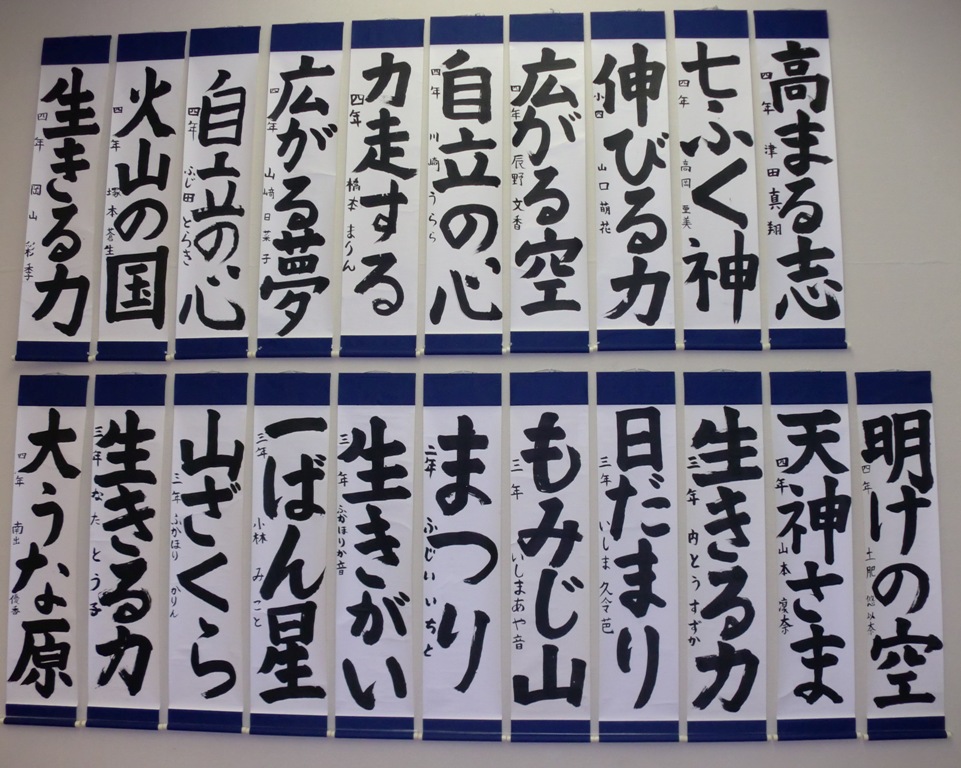 高まる志
四年 津田真翔
七ふく神
四年 高岡 亜美
伸びる力
小四 山口 萌花
広がる空
四年 辰野 文香
自立の心
四年 川崎 うらら
力走する
四年 まりん
広がる夢
四年 山崎 日菜子
自立の心
四年 ふじ田 とらき
火山の国
四年 塚本 蒼生
生きる力
四年 岡山
明けの空
四年 土肥
天神さま
四年 山本 凛奈
生きる力
三年 内とうすずか
日だまり
三年 いしま 久令芭
もみじ山
三年 いしまあや音
まつり
二年 ふじいいちと
生きがい
三年 ふかほりか音
一ばん星
三年 小林 みこと
山ざくら
三年 ふかほり かりん
生きる力
三年 なた とう子
大うな原
四年 南出 優香